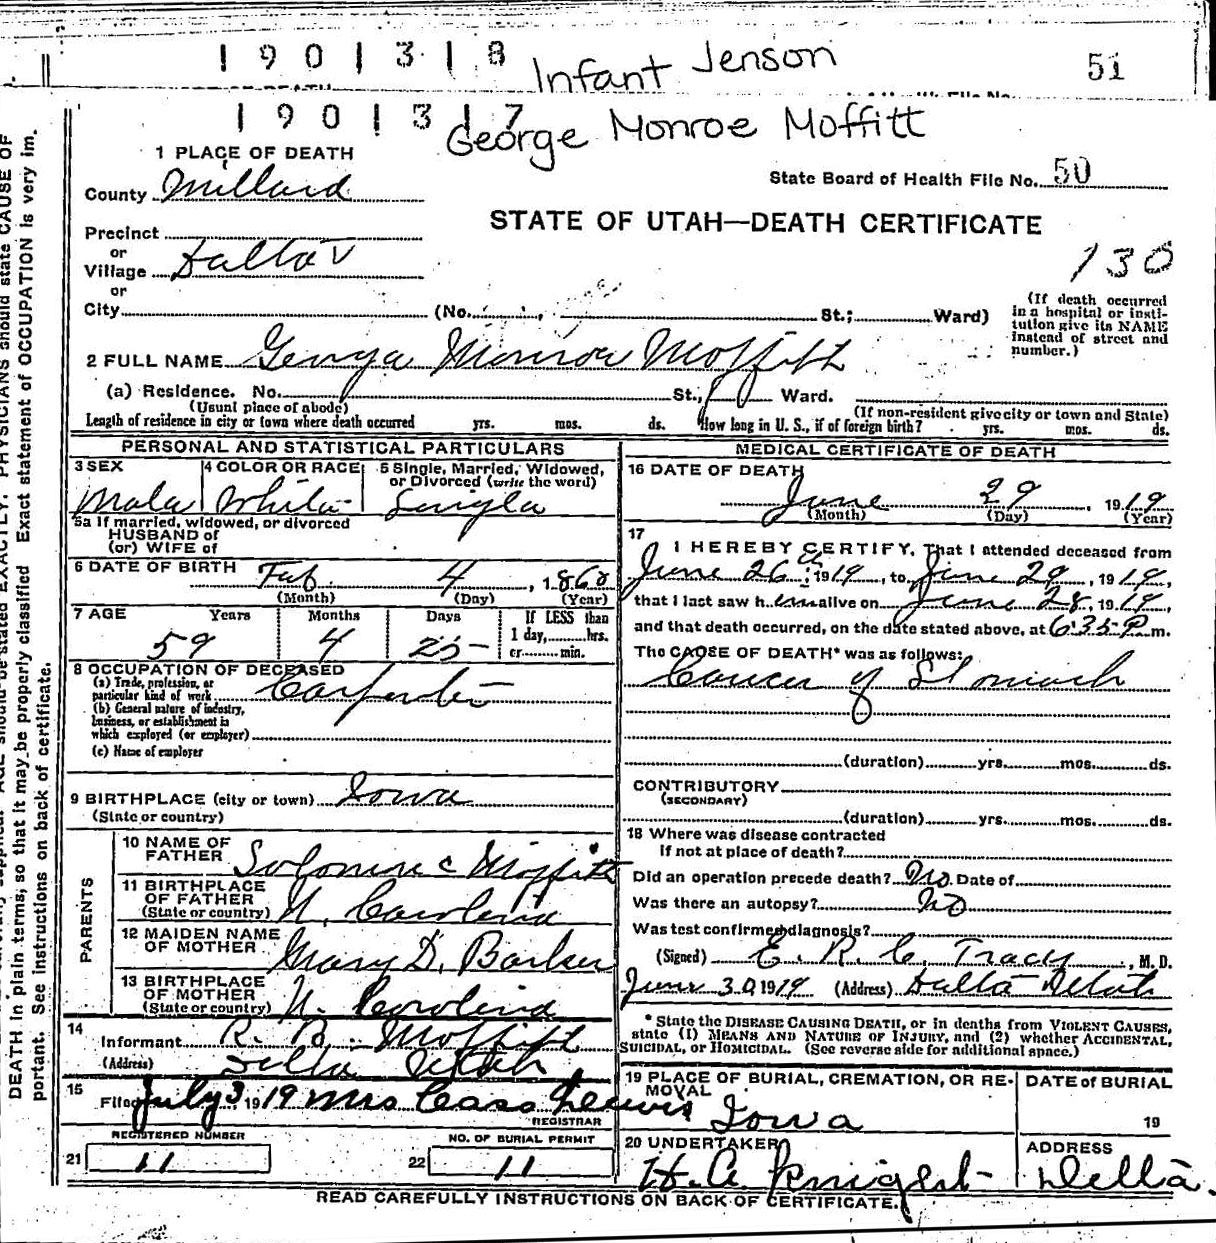 1901318 Infant Jenson 51
1901317 George Monroe Moffitt
1 PLACE OF DEATH
State Board of Health File No. 50
County Millard
STATE OF UTAH—DEATH CERTIFICATE
Precinct
or
Village Delta
130
or
City (No. St.; Ward)
(If death occurred
in a hospital or insti-
tution give its NAME
instead of street and
number.)
2 FULL NAME George Monroe Moffitt
(a) Residence. No. St., Ward.
(Usual place of abode) (If non-resident give city or town and State)
Length of residence in city or town where death occurred yrs. mos. ds. How long in U. S., if of foreign birth? yrs. mos. ds.
PERSONAL AND STATISTICAL PARTICULARS
3 SEX 4 COLOR OR RACE 5 Single, Married, Widowed,
or Divorced (write the word)
Male White Single
5a If married, widowed, or divorced
HUSBAND of
(or) WIFE of
6 DATE OF BIRTH Feb. 4, 1860
(Month) (Day) (Year)
7 AGE Years Months Days If LESS than
1 day, hrs.
or min.
59 4 25
8 OCCUPATION OF DECEASED
(a) Trade, profession, or
particular kind of work Carpenter
(b) General nature of industry,
business, or establishment in
which employed (or employer)
(c) Name of employer
9 BIRTHPLACE (city or town) Iowa
(State or country)
PARENTS
10 NAME OF
FATHER Solomon C Moffitt
11 BIRTHPLACE
OF FATHER
(State or country) N. Carolina
12 MAIDEN NAME
OF MOTHER Mary D. Barker
13 BIRTHPLACE
OF MOTHER
(State or country) N. Carolina
14
Informant R. B. Moffitt
(Address) Delta Utah
15
Filed July 3, 1919 Mrs Cass Lewis
REGISTRAR
REGISTERED NUMBER NO. OF BURIAL PERMIT
21 11 22 11
MEDICAL CERTIFICATE OF DEATH
16 DATE OF DEATH
June 29, 1919
(Month) (Day) (Year)
17
I HEREBY CERTIFY, That I attended deceased from
June 26, 1919, to June 29, 1919,
that I last saw him alive on June 28, 1919,
and that death occurred, on the date stated above, at 6:35 P m.
The CAUSE OF DEATH* was as follows:
Cancer of Stomach
(duration) yrs. mos. ds.
CONTRIBUTORY
(SECONDARY)
(duration) yrs. mos. ds.
18 Where was disease contracted
If not at place of death?
Did an operation precede death? No. Date of
Was there an autopsy? No
Was test confirmed diagnosis?
(Signed) E. R. C. Tracy, M. D.
June 30 1919 (Address) Delta Utah
* State the DISEASE CAUSING DEATH, or in deaths from VIOLENT CAUSES,
state (1) MEANS AND NATURE OF INJURY, and (2) whether ACCIDENTAL,
SUICIDAL, or HOMICIDAL. (See reverse side for additional space.)
19 PLACE OF BURIAL, CREMATION, OR RE-
MOVAL
Iowa
DATE of BURIAL
19
20 UNDERTAKER
H. A. Knight
ADDRESS
Delta.
READ CAREFULLY INSTRUCTIONS ON BACK OF CERTIFICATE.
PHYSICIANS should state CAUSE OF
DEATH in plain terms, so that it may be properly classified. Exact statement of OCCUPATION is very im-
portant. See instructions on back of certificate.